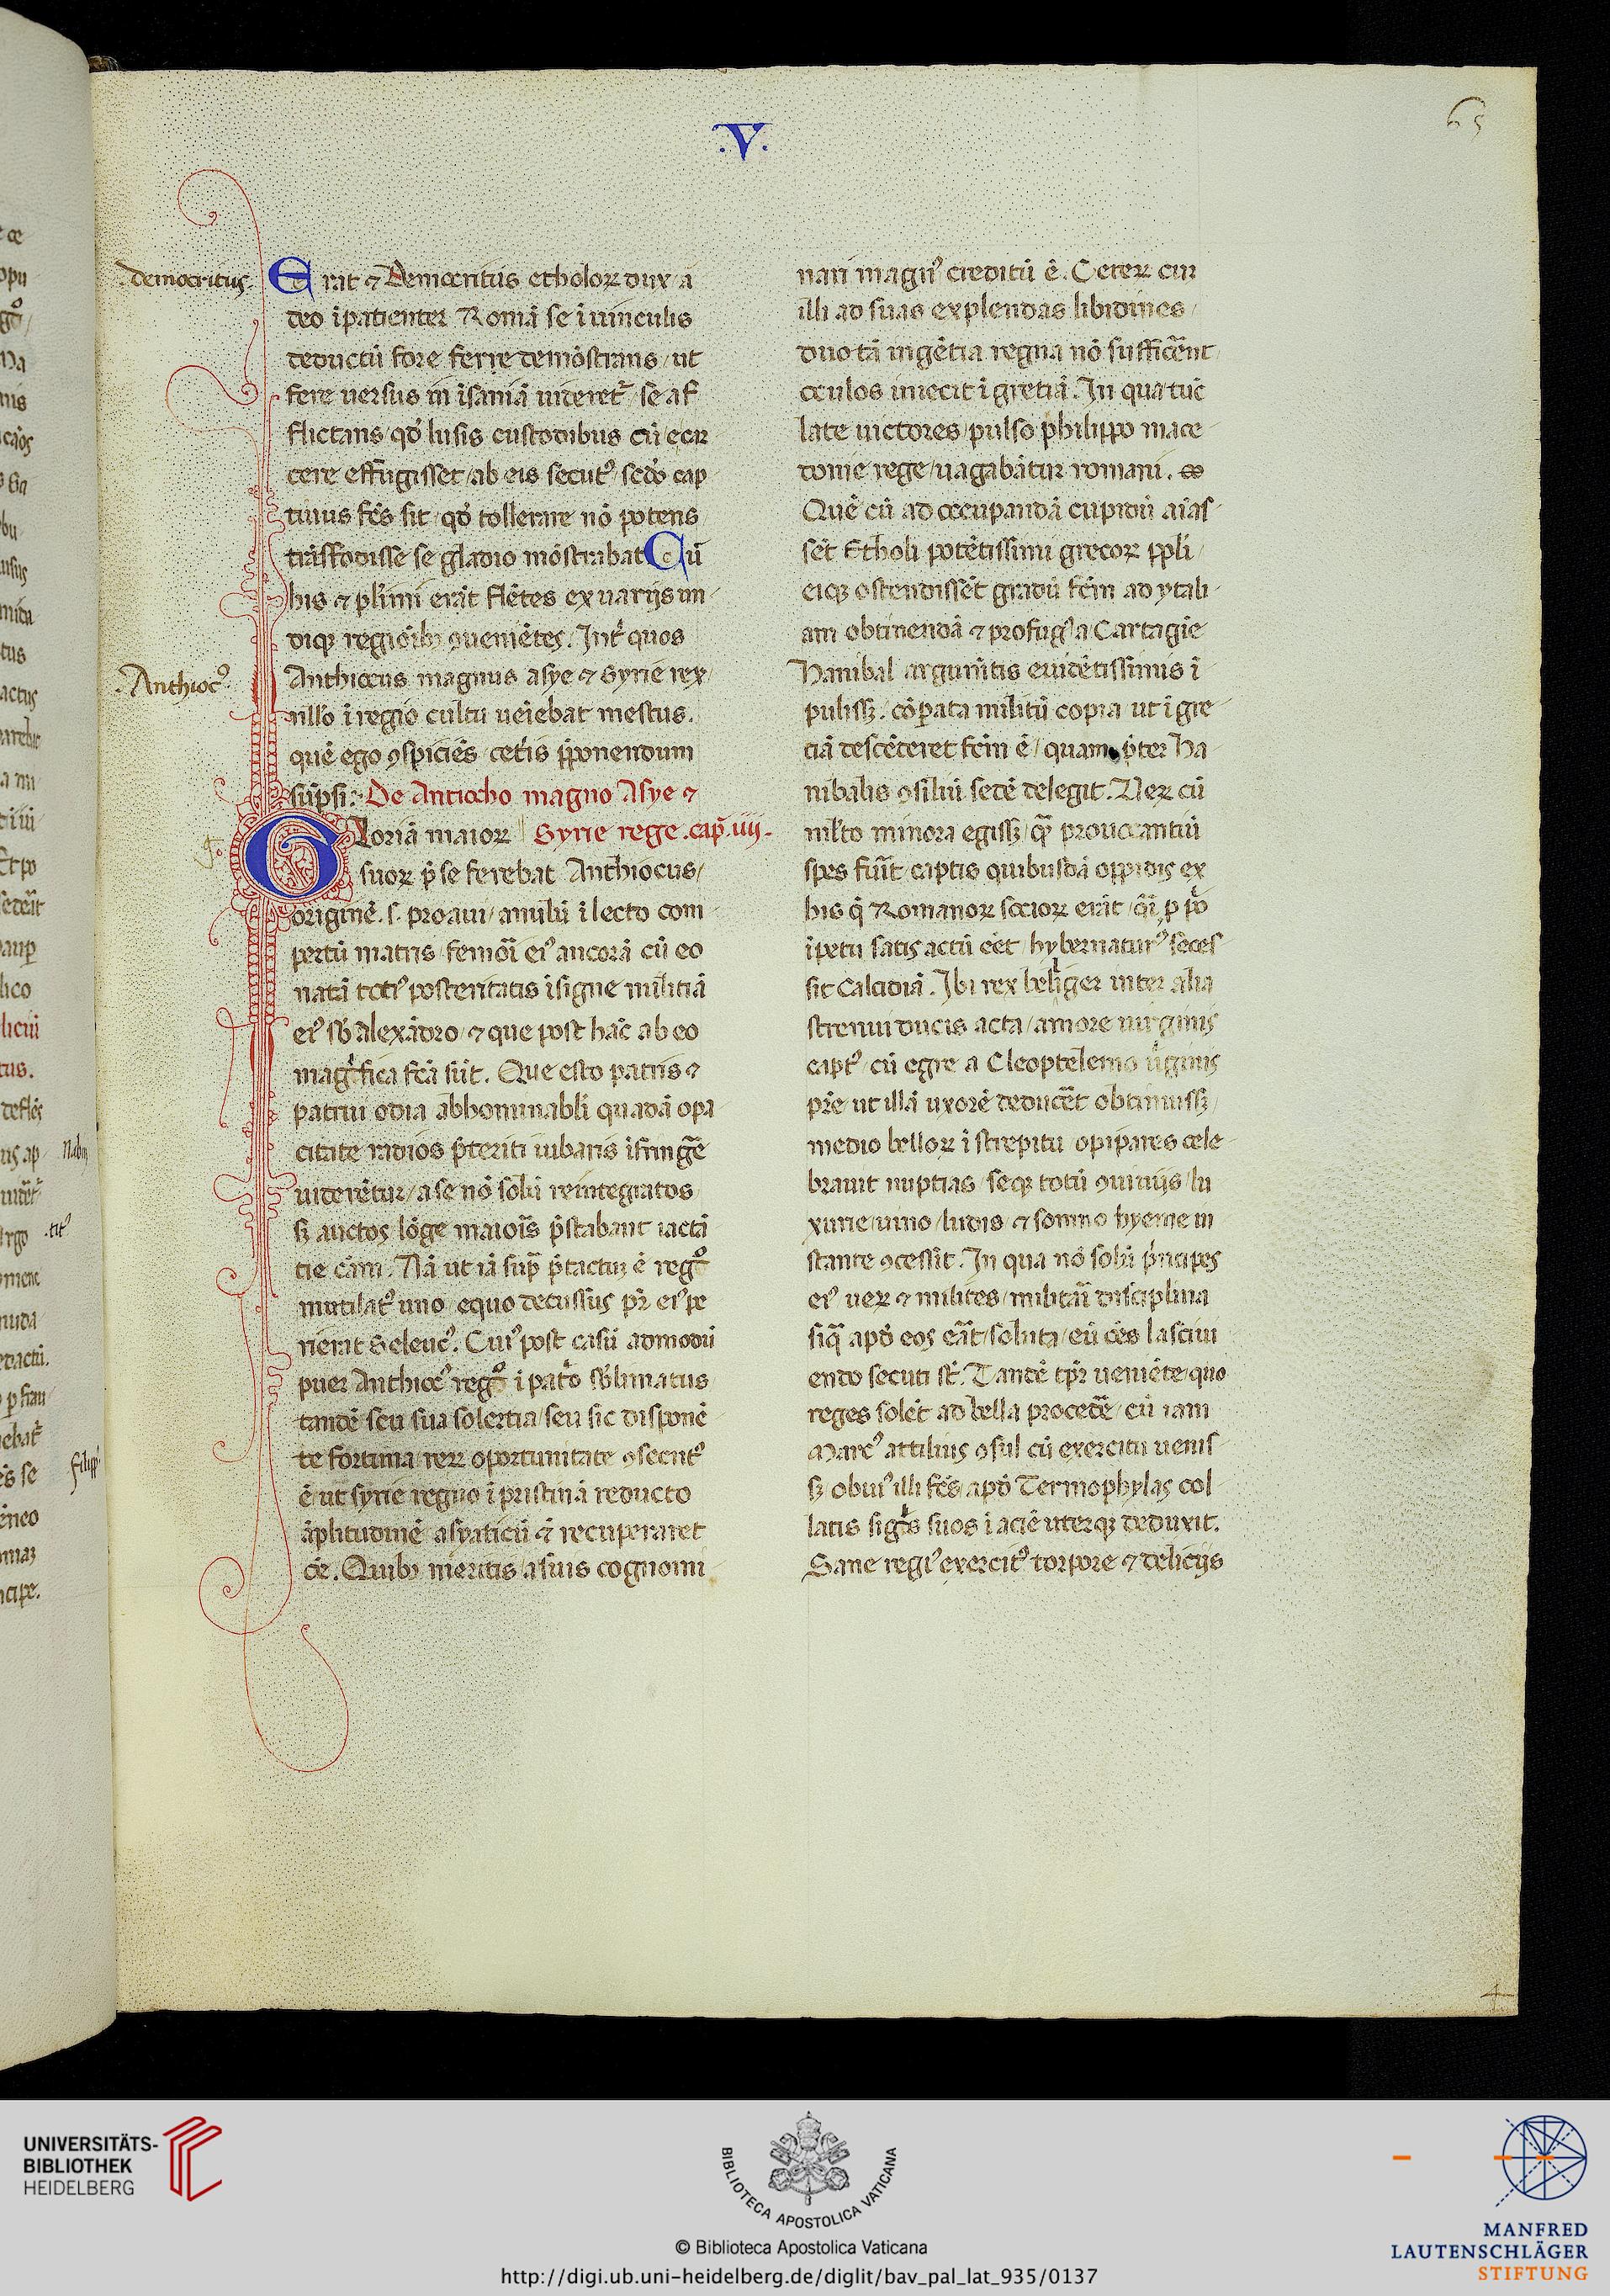 .V.
65
democritus.
Erat ⁊ Democritus etholoꝝ dux / a
deo ĩpatienteꝝ Romã se ĩ uinculis
deductũ fore ferre demõstrans / ut
fere uersus in ĩsaniã uideret᷑ / se af
flictans / qđ lusis custodibus cũ ecar
cere effugisset / ab eis secutꝰ / sedo cap
tiuus fc̃s sit / qđ tollerare nõ potens
trãsfodisse se gladio mõstrabat Cũ
his ⁊ pl'imi erãt flẽtes ex uarijs un
diqꝫ regioĩbꝫ ꝯueniẽtes. Int̃ quos
Anthiocꝰ.
Anthiocus magnus asye ⁊ Syrie rex /
nllo ĩ regio cultu ueiebat mestus.
quẽ ego ꝯspiciẽs / cet̃is p̃ponendum
sũpsi. De Antiocho magno Asye ⁊
Syrie rege .cap̃. iiij.
Gloriã maioꝝ
suoꝝ p̃ se ferebat Anthiocus /
originẽ .s. proaui / anulũ ĩ lecto com
pertũ matris / femoĩ eiꝰ ancorã cũ eo
natã totiꝰ posteritatis ĩsigne / militiã
eiꝰ sb̃ alexãdro / ⁊ que post hac̃ ab eo
magᷓfica fc̃a sũt. Que esto patris ⁊
patrui odia abhominabli quadã opa
citate radios p̃teriti iubaris ĩfringẽ
uiderẽtur / a se nõ solũ reintegratos
sꝫ auctos lõge maiois̃ p̃stabant iactã
tie cãm. Nã ut iã sup̃ p̃tactuꝫ ẽ regᷓᵒ
mutilatꝰ uno / equo decussus pr̃ eiꝰ pe
rierat Seleucꝰ. Cuiꝰ post casũ admodũ
puer Anthiocꝰ regᷓᵒ ĩ patᷓᵒ sb̃limatus
tandẽ seu sua solertia / seu sic disponẽ
te fortuna / reꝝ oportunitate ꝯsecutꝰ
ẽ / ut syrie regno ĩ pristinã reducto
ãplitudinẽ / asyaticũ ⁊ recuperaret
Quibꝫ meritis / a suis cognomi
nari magnꝰ creditũ ẽ. Ceteꝝ cuꝫ
illi ad suas explendas libidines /
duo tã ingẽtia regna nõ sufficẽnt
oculos iniecit ĩ gretiã. In qua tũc
late uictores / pulso philippo mace
donie rege / uagabãtur romani.
Quẽ cũ ad occupandã cupidũ aĩas
sẽt Etholi potẽtissimi grecoꝝ pp̃li /
eiqꝫ ostendissẽt gradũ fẽm ad ytali
am obtinendã ⁊ profugꝰ a Cartagĩe
Hanibal argum̃tis euidẽtissimis ĩ
pulissꝫ. cõparata militũ copia ut ĩ gre
tiã descẽderet fẽm ẽ / quam p̃ter Ha
nibalis ꝯsiliũ sedẽ delegit. Veꝝ cũ
mlto minora egissꝫ / qᷓꝫ prouocantiũ
spes fuĩt / captis quibusdã oppidis ex
his q̃ Romanoꝝ socioꝝ erãt / q̃i p põ
ĩpetu satis actũ eẽt / hybernaturꝰ seces
sit Calcidiã. Ibi rex belliger inter alia
strenui ducis acta / amore uirginis
captꝰ / cũ egre a Cleoptelemo ũginis
pr̃e / ut illã uxorẽ deducẽt obtinuissꝫ
medio belloꝝ ĩ strepitu opipares cele
brauit nuptias / seqꝫ totũ ꝯuiuijs / lu
xurie / uino / ludis ⁊ somno hyeme in
stante ꝯcessit. In qua nõ solũ p̃ncipes
eiꝰ ueꝝ ⁊ milites / militãi disciplina
siqᷓ apd̃ eos eãt / soluta / eũ cẽs lasciui
endo secuti sũt. Tandẽ tp̃r ueniẽte / quo
reges solẽt ad bella procedẽ / cũ iam
Marcꝰ attilius ꝯsul cũ exercitu uenis
sꝫ / obuiꝰ illi fc̃s / apđ Termophylas col
latis sigᷓs suos ĩ aciẽ uterqꝫ deduxit.
Sane regiꝰ exercitꝰ torpore ⁊ delicijs
UNIVERSITÄTS-
BIBLIOTHEK
HEIDELBERG
BIBLIOTECA APOSTOLICA VATICANA
© Biblioteca Apostolica Vaticana
http://digi.ub.uni-heidelberg.de/diglit/bav_pal_lat_935/0137
MANFRED
LAUTENSCHLÄGER
STIFTUNG